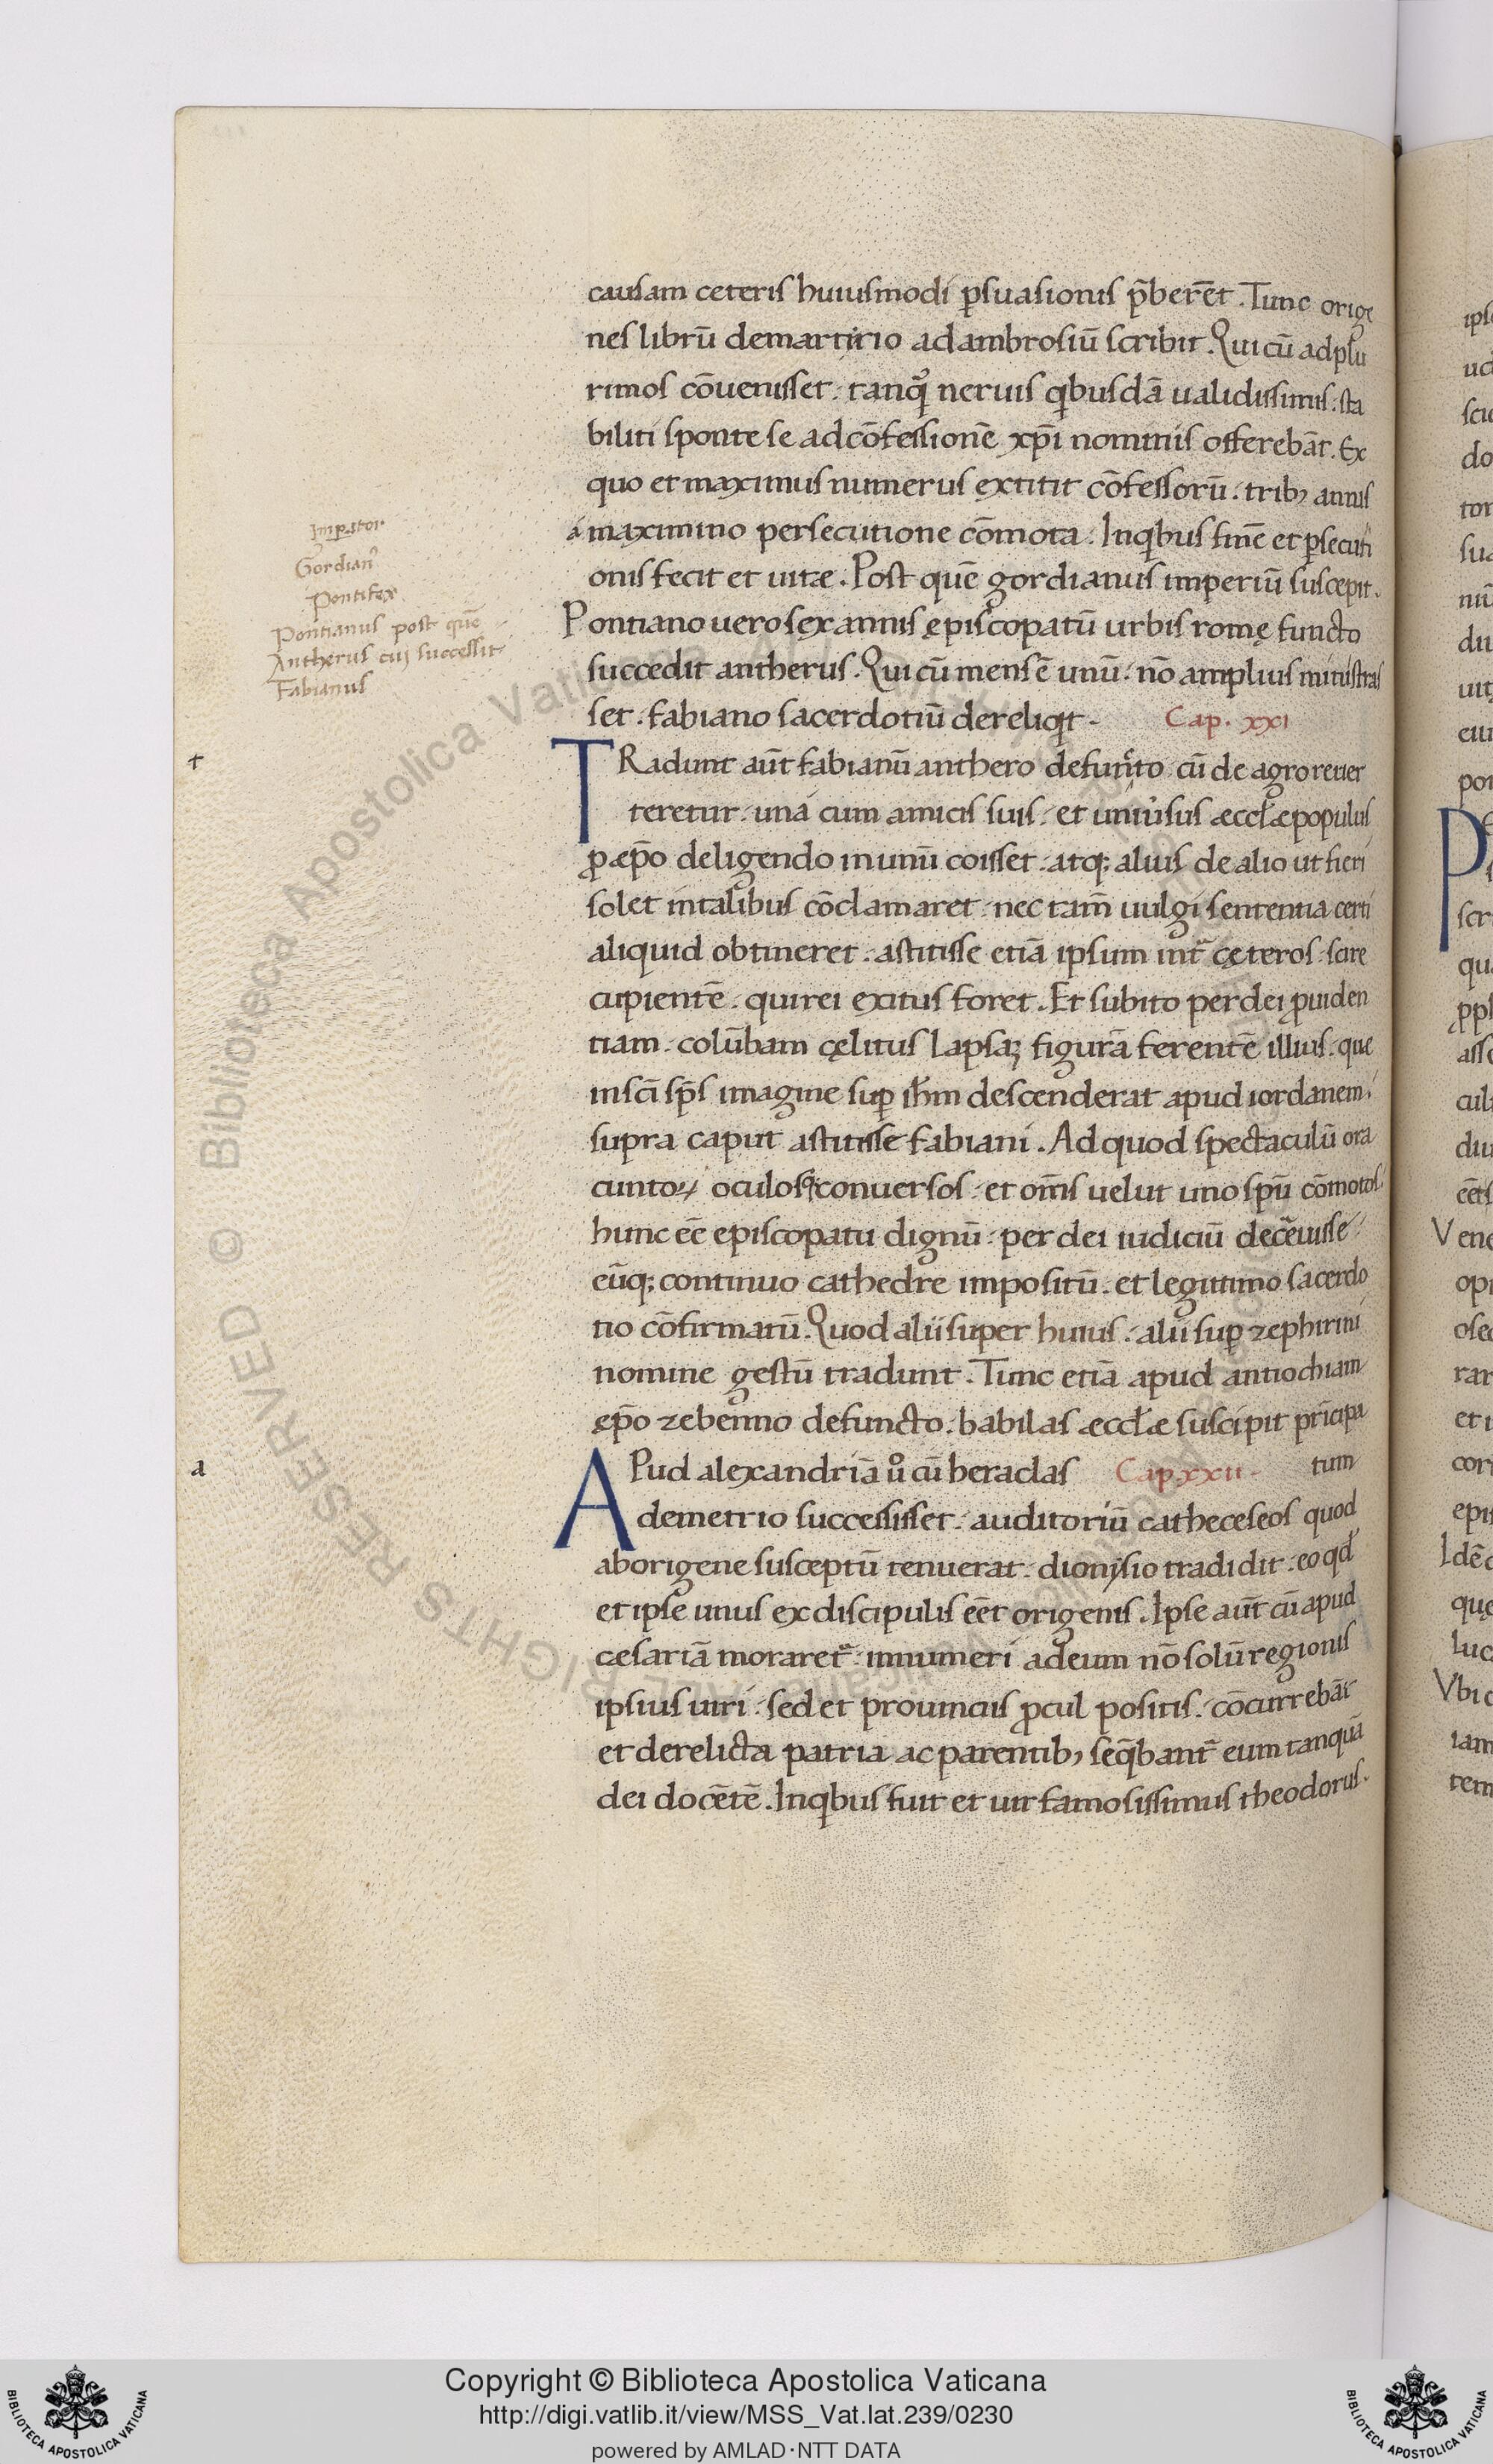 causam ceteris huiusmodi p̱suasionis p̄berēt. Tunc orige
nes librū demartirio adambrosiū scribit. Qui cū adplu
rimos cōuenisset. tanqͣ neruis qibusdā ualidissimis. sta
biliti sponte se adcōfessionē xp̄i nominis offerebāt. Ex
quo et maximus numerus extitit cōfessorū. trib; annis
á maximino persecutione cōmota. Inqibus finē et p̱secuti
onis fecit et uitæ. Post quē gordianus imperiū suscepit.
Pontiano uero sex annis ępiscopatū urbis romę functo
succedit antherus. Qui cū mensē unū. nō amplius ministras
set. fabiano sacerdotiū dereliqit. Cap. xxi
TRadunt aūt fabianū anthero defuncto cū de agro reuer
teretur. una cum amicis suis. et uniūsus æccłæ populus
ꝓ æpō deligendo inunū coisset. atq; alius de alio ut fieri
solet intalibus cōclamaret. nec tam̄ uulgi sententia certi
aliquid obtineret. astitisse etiā ipsum int̄ cęteros. scire
cupientē. qui rei exitus foret. Et subito per dei ꝓuiden
tiam. colūbam cęlitus lapsaꝫ figurā ferentē illius. que
insc̄i sp̄s imagine sup̱ ih̄m descenderat apud iordanem.
supra caput astitisse fabiani. Ad quod spectaculū ora
cunctoꝝ oculosq; conuersos. et om̄s uelut uno sp̄u cōmotos
hunc eē episcopatu dignū. per dei iudiciū decreuisse.
eūq; continuo cathedre impositū. et legittimo sacerdo
tio cōfirmatū. Quod alii super huius. alii sup̱ zephirini
nomine gestū tradunt. Tunc etiā apud antiochiam
ępō zebenno defuncto. babilas æccłæ suscipit prīcipa
tum
APud alexandriā ů cū heraclas Cap. xxii.
demetrio successisset. auditoriū catheceseos quod
aborigene susceptū tenuerat. dionysio tradidit. eo qd
et ipse unus ex discipulis eēt origenis. Ipse aūt cū apud
cesariā moraret̄. innumeri adeum nō solū regionis
ipsius uiri. sed et prouinciis ꝓcul positis. cōcurrebāt
et derelicta patria ac parentib; seq̄bant̄ eum tanquā
dei docētē. Inqibus fuit et uir famosissimus theodorus.
Impator
Gordianꝰ
Pontifex
Pontianus post quē
Antherus cuj successit
Fabianus
t
a
Copyright © Biblioteca Apostolica Vaticana
http://digi.vatlib.it/view/MSS_Vat.lat.239/0230
powered by AMLAD·NTT DATA